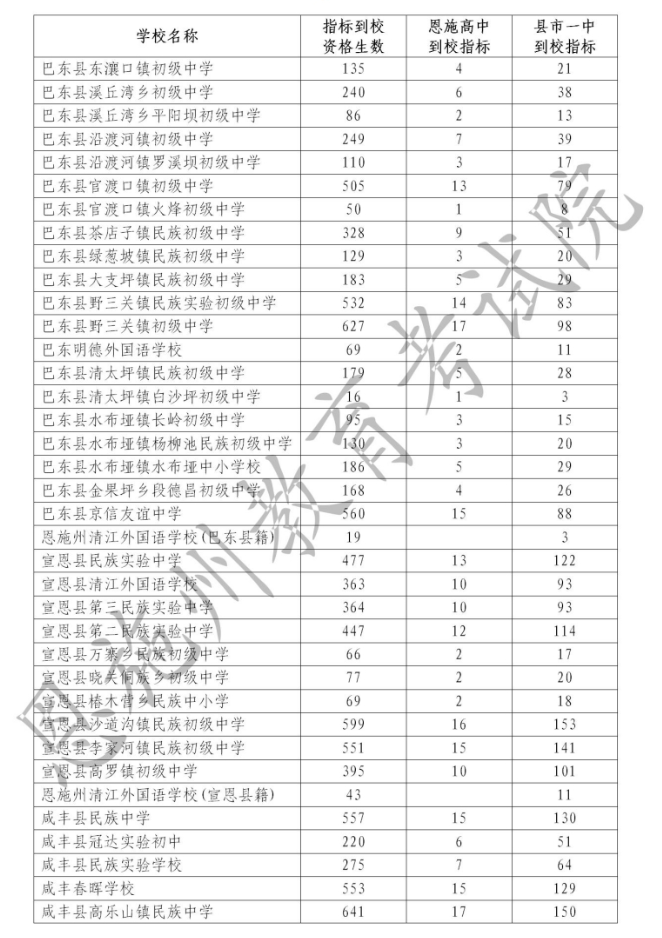 学校名称 指标到校 恩施高中 县市一中
资格生数 到校指标 到校指标
巴东县东瀼口镇初级中学 135 4 21
巴东县溪丘湾乡初级中学 240 6 38
巴东县溪丘湾乡平阳坝初级中学 86 2 13
巴东县沿渡河镇初级中学 249 7 39
巴东县沿渡河镇罗溪坝初级中学 110 3 17
巴东县官渡口镇初级中学 505 13 79
巴东县官渡口镇火烽初级中学 50 1 8
巴东县茶店子镇民族初级中学 328 9 51
巴东县绿葱坡镇民族初级中学 129 3 20
巴东县大支坪镇民族初级中学 183 5 29
巴东县野三关镇民族实验初级中学 532 14 83
巴东县野三关镇初级中学 627 17 98
巴东明德外国语学校 69 2 11
巴东县清太坪镇民族初级中学 179 5 28
巴东县清太坪镇白沙坪初级中学 16 1 3
巴东县水布垭镇长岭初级中学 95 3 15
巴东县水布垭镇杨柳池民族初级中学 130 3 20
巴东县水布垭镇水布垭中小学校 186 5 29
巴东县金果坪乡段德昌初级中学 168 4 26
巴东县京信友谊中学 560 15 88
恩施州清江外国语学校(巴东县籍) 19 3
宣恩县民族实验中学 477 13 122
宣恩县清江外国语学校 363 10 93
宣恩县第三民族实验中学 364 10 93
宣恩县第二民族实验中学 447 12 114
宣恩县万寨乡民族初级中学 66 2 17
宣恩县晓关侗族乡初级中学 77 2 20
宣恩县椿木营乡民族中小学 69 2 18
宣恩县沙道沟镇民族初级中学 599 16 153
宣恩县李家河镇民族初级中学 551 15 141
宣恩县高罗镇初级中学 395 10 101
恩施州清江外国语学校(宣恩县籍) 43 11
咸丰县民族中学 557 15 130
咸丰县冠达实验初中 220 6 51
咸丰县民族实验学校 275 7 64
咸丰春晖学校 553 15 129
咸丰县高乐山镇民族中学 641 17 150
恩施州教育考试院